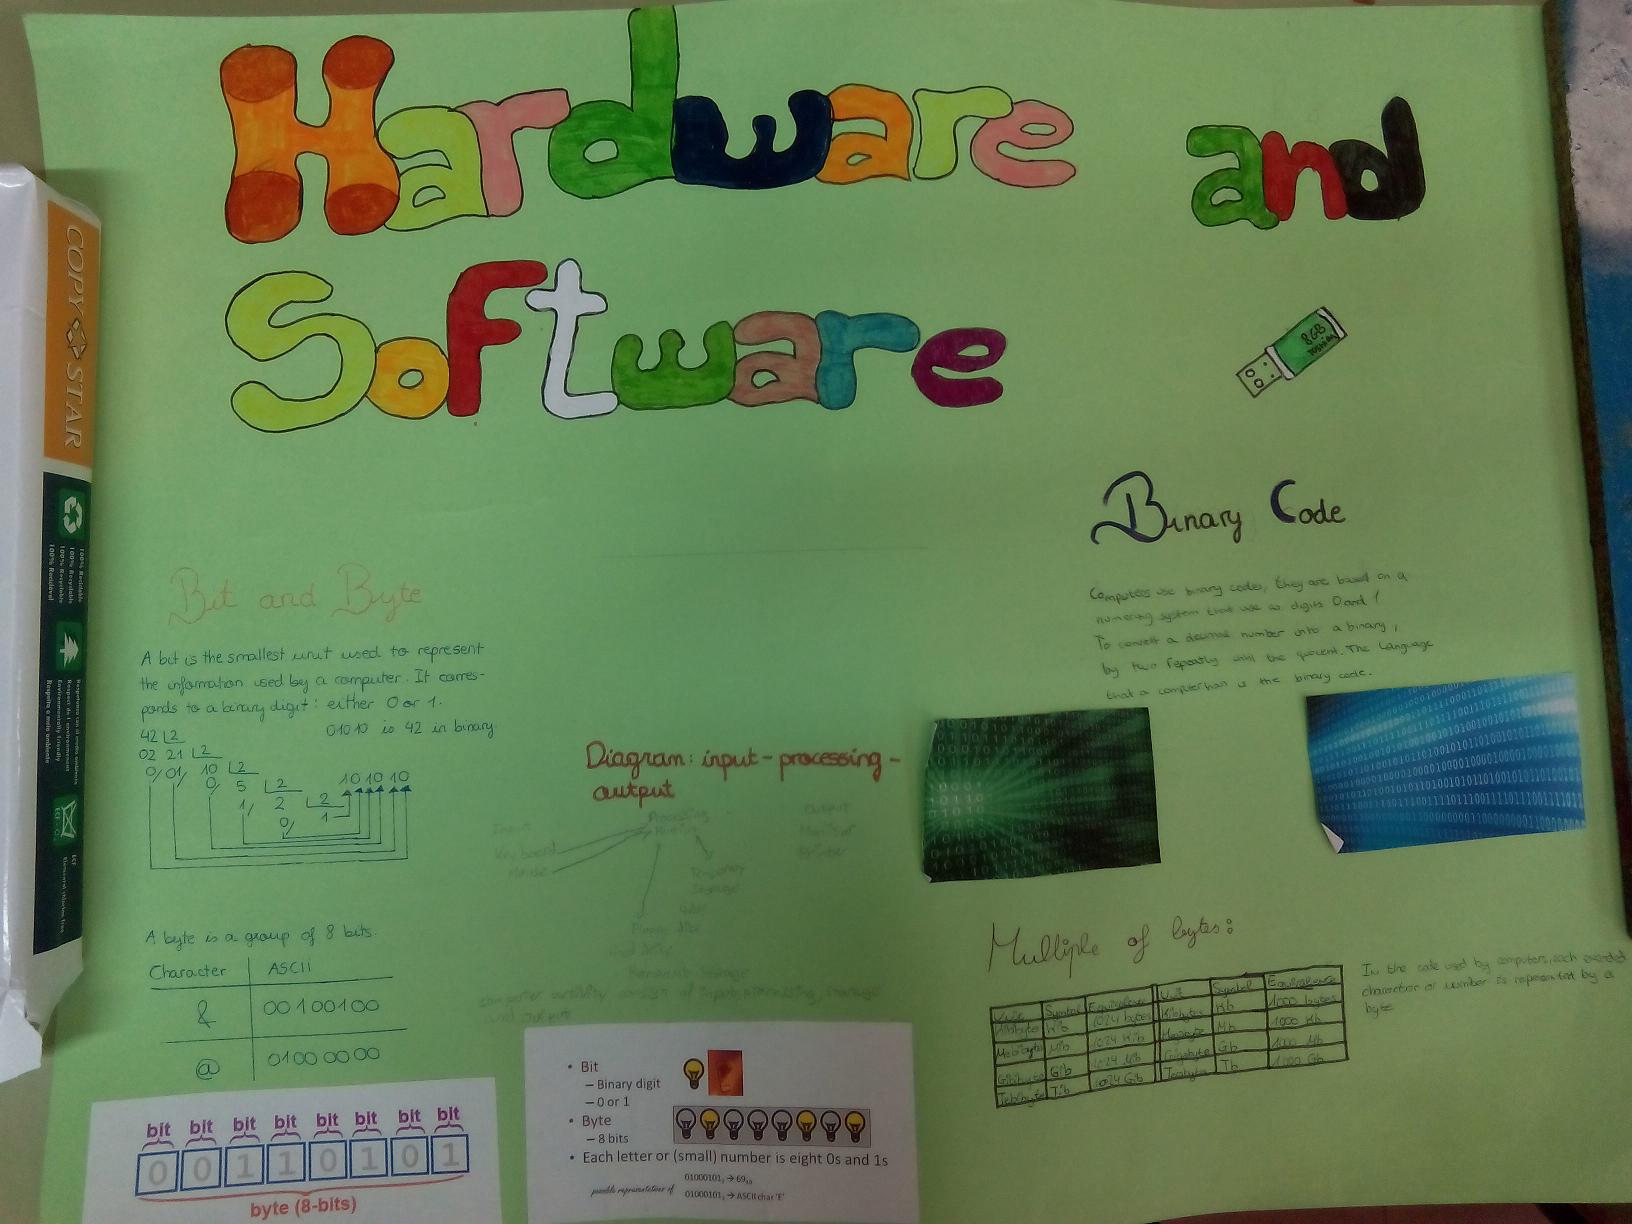 Hardware and
Software
8GB
TOSHIBA
COPY STAR
100% Reciclable
100% Recyclable
100% Reciclável
Environmentally friendly
Respeita o meio ambiente
Binary Code
Computers use binary codes, they are based on a
numering system that use as digits 0 and 1
To convert a decimal number into a binary,
by two repeatly until the quocent. The language
that a computer has is the binary code.
Bit and Byte
A bit is the smallest unit used to represent
the information used by a computer. It corres-
ponds to a binary digit: either 0 or 1.
01010 is 42 in binary
42 2
02 21 2
0/ 01/ 10 2
0/ 5 2
1/ 2 2
0/ 1
10 10 10
Diagram: input - processing -
output
Input
Keyboard
Mouse
Processing
Output
Monitor
Printer
computer activity consist of input, processing, storage
and output
A byte is a group of 8 bits.
Character ASCII
& 00100100
@ 01000000
Multiple of bytes:
Unit Symbol Equivalence Unit Symbol Equivalence
Kibibyte Kib 1024 bytes Kilobytes Kb 1000 bytes
Mebibyte Mib 1024 Kib Megabyte Mb 1000 Kb
Gibibyte Gib 1024 Mib Gigabyte Gb 1000 Mb
Tebibyte Tib 1024 Gib Terabyte Tb 1000 Gb
In the code used by computers, each
character or number is represented by a
byte
bit bit bit bit bit bit bit bit
0 0 1 1 0 1 0 1
byte (8-bits)
• Bit
– Binary digit
– 0 or 1
• Byte
– 8 bits
• Each letter or (small) number is eight 0s and 1s
possible representation of
01000101₂ → 69₁₀
01000101₂ → ASCII char 'E'